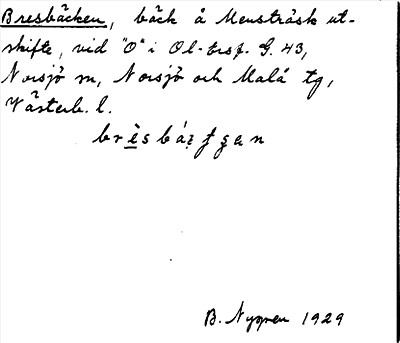 Bresbäcken, bäck å Mensträsk ut-
skifte, vid "O" i Ol-torp. G. 43,
Norsjö sn, Norsjö och Malå tg,
Västerb. l.
B. Nygren 1929